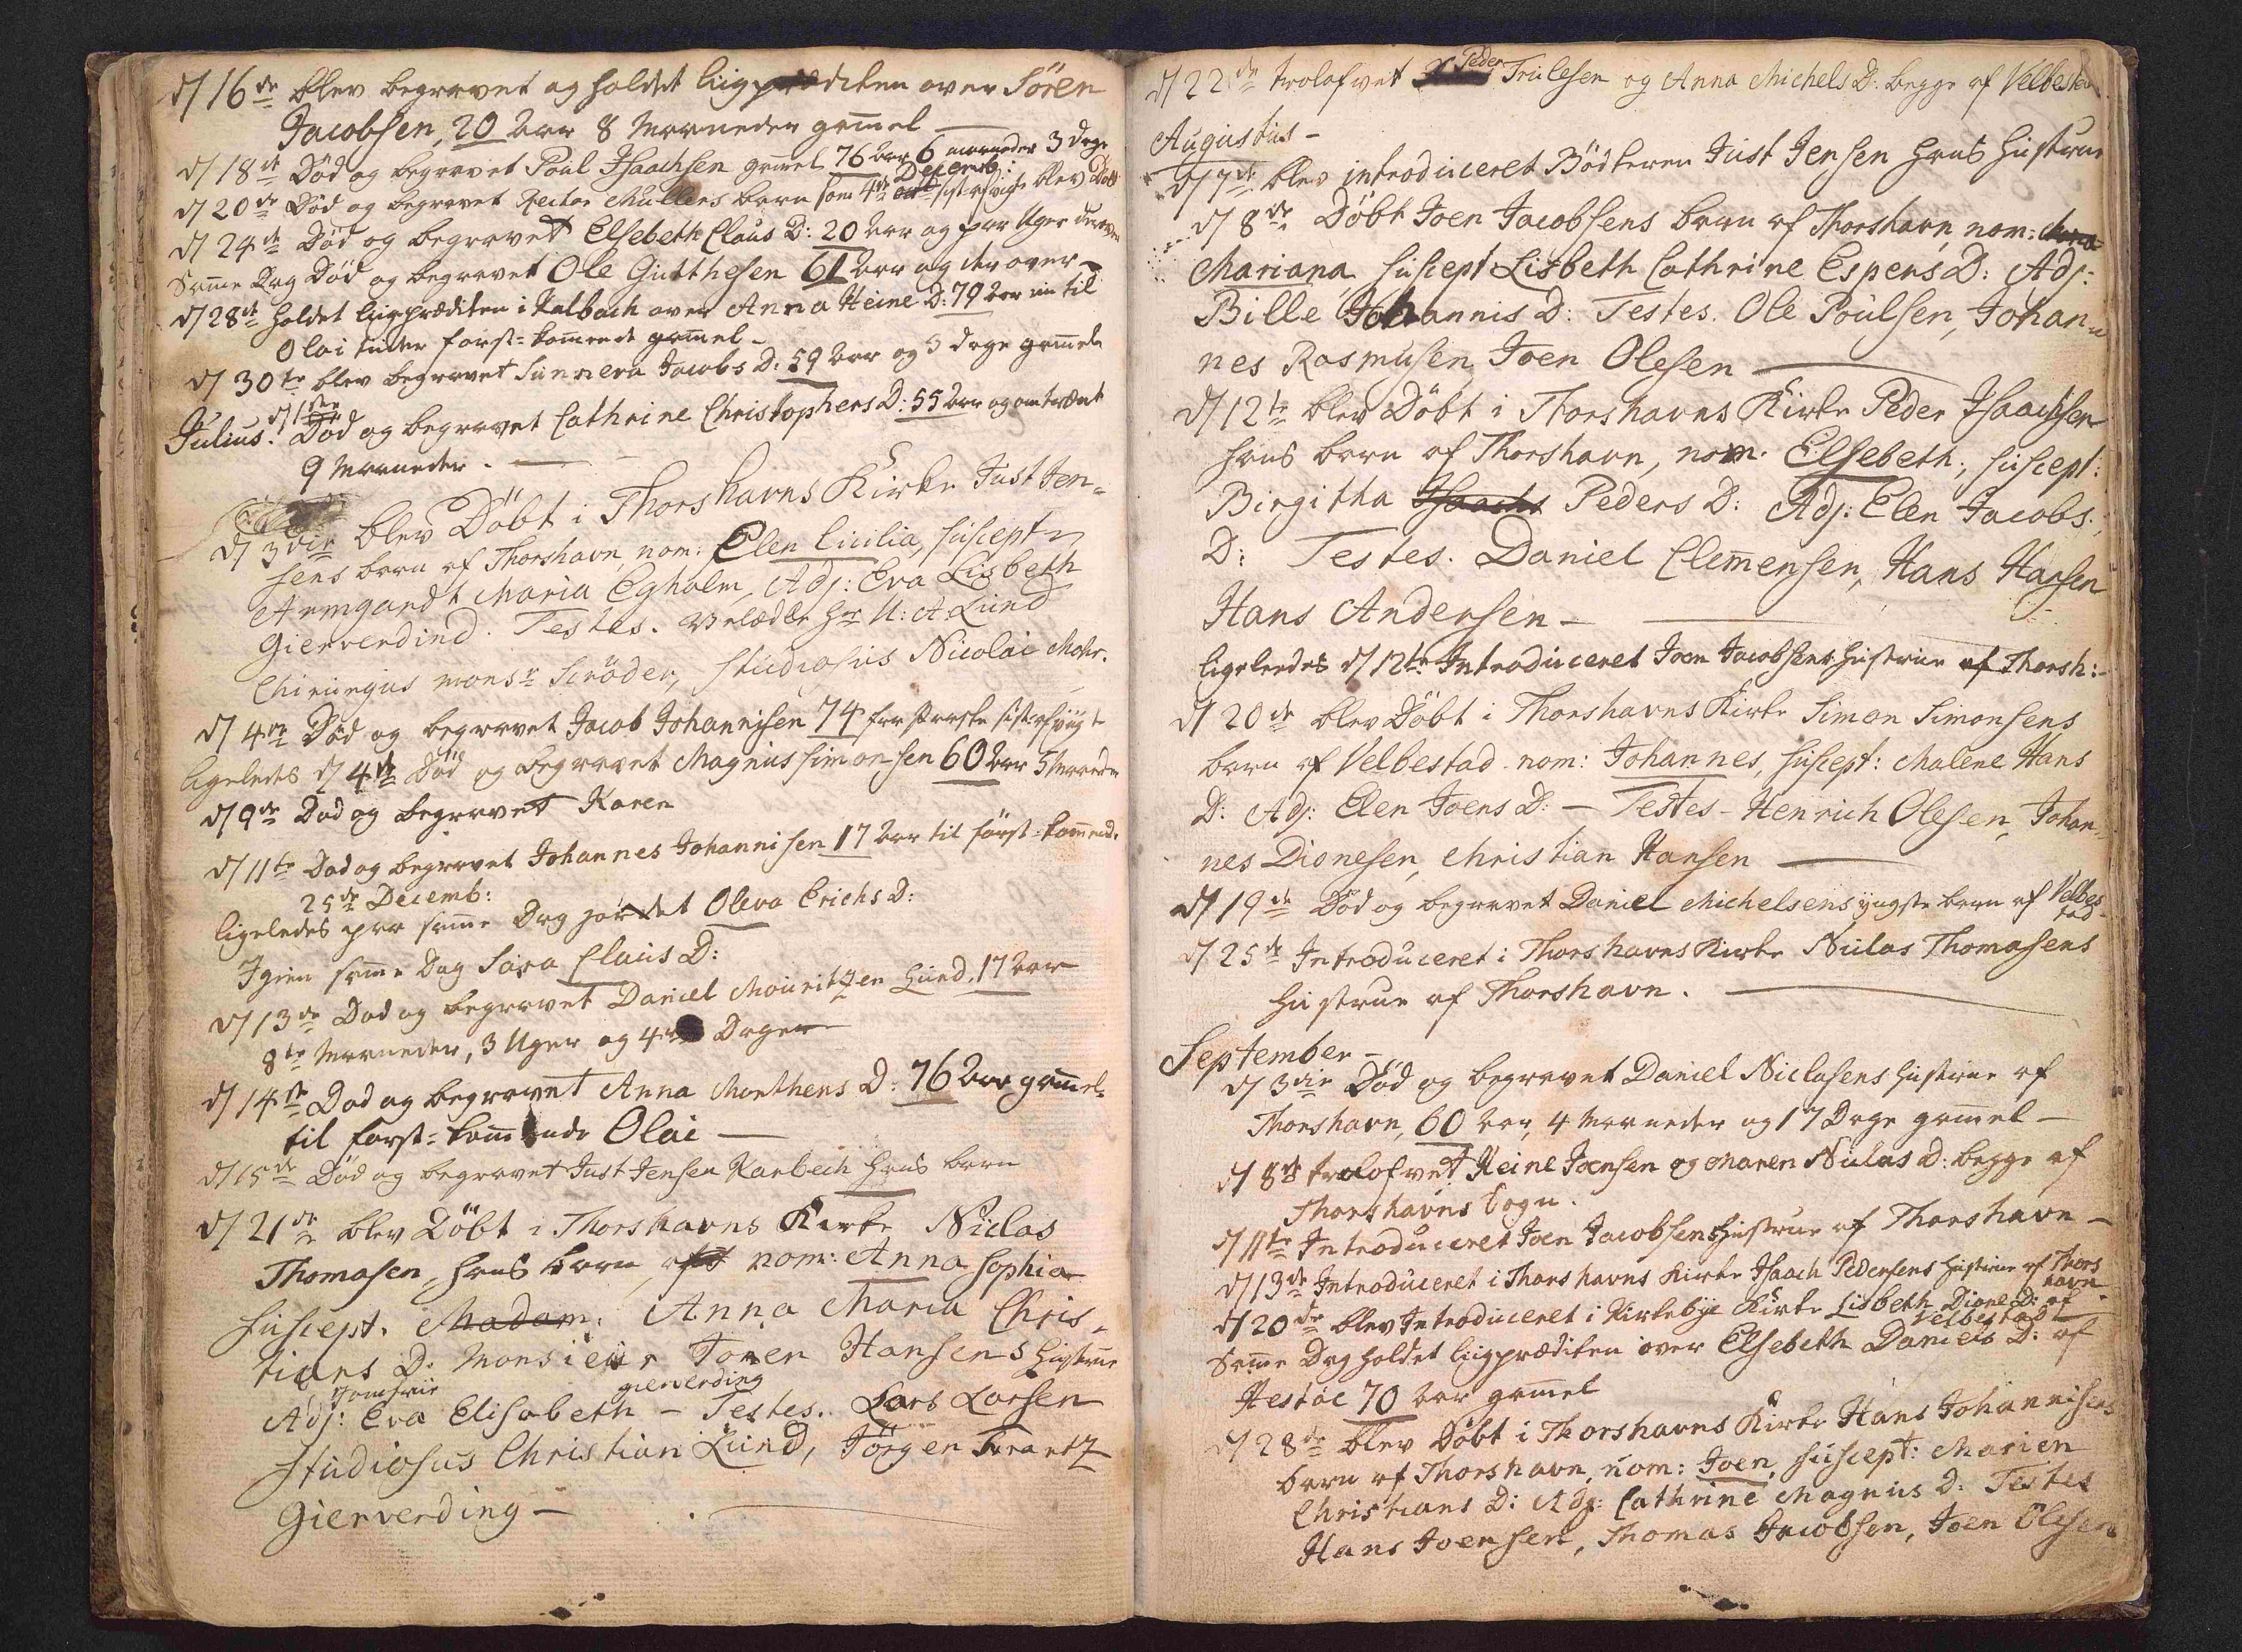 d/ 16de blev begravet og holdet liigprædiken over Sören
Jacobsen, 20 aar 8 Maaneder gam̄el —
d/ 18de Död og begravet Poul Jsaachsen gam̄el 76 aar 6 maaneder 3 dage
d/ 20de Död og begravet Rector Mullers barn som 4de Decemb: sist afvigte blev Döbt
d/ 24de Död og begravet Elsebeth Claus D: 20 aar og par Uger derover
Sam̄e Dag Död og begravet Ole Gutthesen 61 aar og derover —
d/ 28de holdet liigprædiken i Kalbach over Anna Heine D: 79 aar in til
Olai tider först-kom̄ende gam̄el —
d/ 30te blev begravet Sunneva Jacobs D: 59 aar og 3 dage gam̄el
Julius. d/ 1ste Död og begravet Cathrine Christophers D: 55 aar og omtrent
9 Maaneder. —
d/ 3die blev Döbt i Thorshavns Kirke Just Jen-
sens barn af Thorshavn, nom: Elen Cicilia, suscept
Armgardt Maria Egholm, Adj: Eva Lisbeth
Gierverdind. Testes. Velædle Hr U: A Lund
Chirurgus monsr Scröder, Studiosus Nicolai Mohr.
d/ 4de Död og begravet Jacob Johannisen 74 sist afvigte
ligeledes d/ 4de Död og begravet Magnus Simonsen 60 aar 5 Maaneder
d/ 9de Död og begravet Karen
d/ 11te Död og begravet Johannes Johannisen 17 aar til först-kom̄end.
25de Decemb:
ligeledes paa sam̄e Dag jordet Oleva Erichs D:
Igien sam̄e Dag Sara Claus D:
d/ 13de Död og begravet Daniel Mouritzen Lund. 17 aar
8te Maaneder, 3 Uger og 4re Dager
d/ 14de Död og begravet Anna Morthens D: 76 aar gam̄el
til först-kom̄ende Olai —
d/ 15de Död og begravet Just Jensen Karbech hans barn
d/ 21de blev Döbt i Thorshavns Kirke Niclas
Thomasen, hans barn af nom: Anna Sophia
suscept. Madam. Anna Maria Chris-
tians D. Monsieur Joner Hansens Hustrue
Adj: Jomfrue Eva Elisabeth gierverding — Testes. Lars Larsen
Studiosus Christian Lund, Jörgen Frantz
Gierverding —
d/ 22de trolofvet Peder Trulesen og Anna Michels D: begge af Velbestad
Augustus —
d/ 7de blev introduceret Bödkeren Just Jensen hans Hustrue
d/ 8de Döbt Joen Jacobsens barn af Thorshavn, nom:
Mariana, suscept Lisbeth Cathrine Espens D: Adj:
Bille Johannis D: Testes. Ole Poulsen, Johan-
nes Rasmusen, Joen Olesen —
d/ 12te blev Döbt i Thorshavns Kirke Peder Jsaachsen
hans barn af Thorshavn, nom. Elsebeth, suscept:
Birgitha Jsaachs Peders D: Adj: Elen Jacobs
D: Testes. Daniel Clem̄ensen, Hans Hansen
Hans Andersen —
ligeledes d/ 12te Introduceret Joen Jacobsens Hustrue af Thorsh:
d/ 20de blev Döbt i Thorshavns Kirke Simon Simonsens
barn af Velbestad. nom: Johannes, suscept: Malene Hans
D: Adj: Elen Joens D: — Testes — Henrich Olesen, Johan-
nes Dionesen, Christian Hansen —
d/ 19de Död og begravet Daniel Michelsens yngste barn af Velbestad
d/ 25de Introduceret i Thorshavns Kirke Niclas Thomasens
Hustrue af Thorshavn. —
September —
d/ 3die Död og begravet Daniel Niclasens Hustrue af
Thorshavn, 60 aar, 4 Maaneder og 17 Dage gam̄el —
d/ 8de trolofvet Heine Joensen og Maren Niclas D: begge af
Thorshavns Sogn.
d/ 11te Introduceret Joen Jacobsens Hustrue af Thorshavn —
d/ 13de Introduceret i Thorshavns Kirke Jsaach Pedersens Hustrue af Thorshavn.
d/ 20de blev Introduceret i Kirkebye Kirke Lisbeth Dione D: af Velbestad
Sam̄e Dag holdet liigprædiken over Elsebeth Daniels D: af
Hestöe 70 aar gam̄el
d/ 28de blev Döbt i Thorshavns Kirke Hans Johannisens
barn af Thorshavn, nom: Joen, suscept: Marien
Christians D: Adj: Cathrine Magnus D: Testes
Hans Joensen, Thomas Jacobsen, Joen Olesen